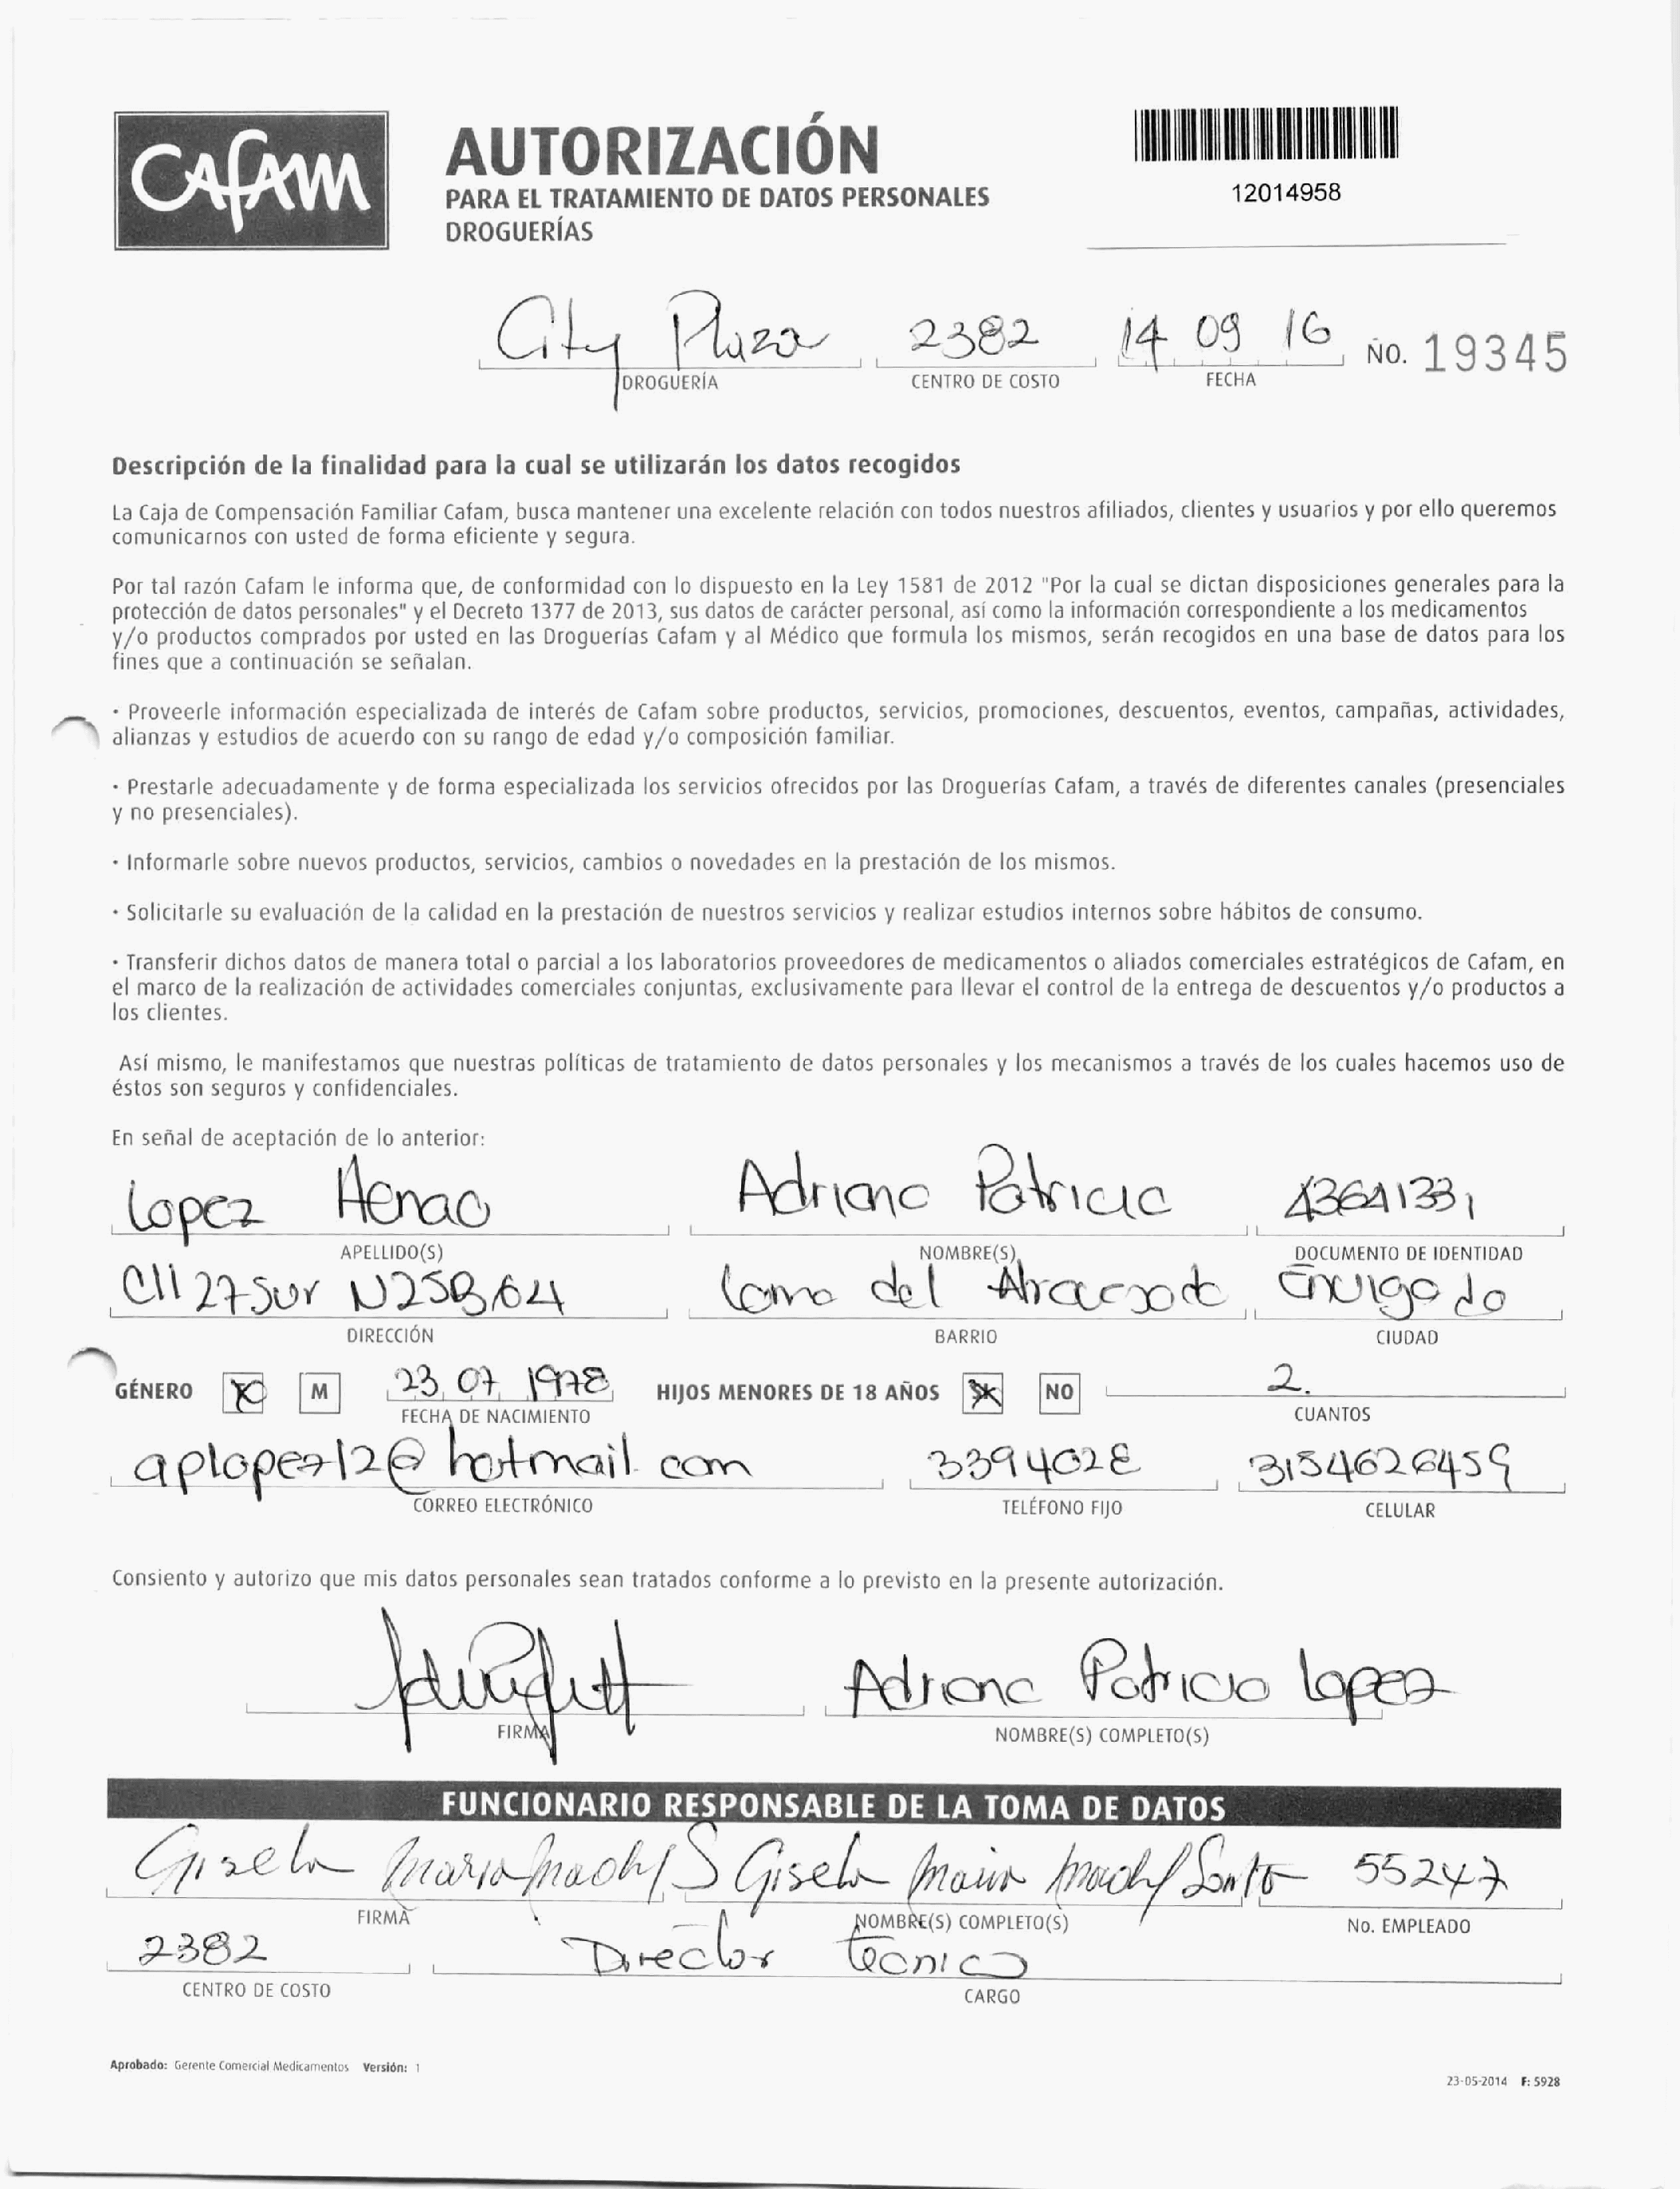 CAFAM
AUTORIZACIÓN
PARA EL TRATAMIENTO DE DATOS PERSONALES
DROGUERÍAS
12014958
City Plaza 2382 14 09 16 NO. 19345
DROGUERÍA CENTRO DE COSTO FECHA
Descripción de la finalidad para la cual se utilizarán los datos recogidos
La Caja de Compensación Familiar Cafam, busca mantener una excelente relación con todos nuestros afiliados, clientes y usuarios y por ello queremos
comunicarnos con usted de forma eficiente y segura.
Por tal razón Cafam le informa que, de conformidad con lo dispuesto en la Ley 1581 de 2012 "Por la cual se dictan disposiciones generales para la
protección de datos personales" y el Decreto 1377 de 2013, sus datos de carácter personal, así como la información correspondiente a los medicamentos
y/o productos comprados por usted en las Droguerías Cafam y al Médico que formula los mismos, serán recogidos en una base de datos para los
fines que a continuación se señalan.
· Proveerle información especializada de interés de Cafam sobre productos, servicios, promociones, descuentos, eventos, campañas, actividades,
alianzas y estudios de acuerdo con su rango de edad y/o composición familiar.
· Prestarle adecuadamente y de forma especializada los servicios ofrecidos por las Droguerías Cafam, a través de diferentes canales (presenciales
y no presenciales).
· Informarle sobre nuevos productos, servicios, cambios o novedades en la prestación de los mismos.
· Solicitarle su evaluación de la calidad en la prestación de nuestros servicios y realizar estudios internos sobre hábitos de consumo.
· Transferir dichos datos de manera total o parcial a los laboratorios proveedores de medicamentos o aliados comerciales estratégicos de Cafam, en
el marco de la realización de actividades comerciales conjuntas, exclusivamente para llevar el control de la entrega de descuentos y/o productos a
los clientes.
Así mismo, le manifestamos que nuestras políticas de tratamiento de datos personales y los mecanismos a través de los cuales hacemos uso de
éstos son seguros y confidenciales.
En señal de aceptación de lo anterior:
Lopez Henao Adriana Patricia 43641331
APELLIDO(S) NOMBRE(S) DOCUMENTO DE IDENTIDAD
Cll 27 Sur N25B64 Loma del Envigado
DIRECCIÓN BARRIO CIUDAD
GÉNERO M 23 07 1978 HIJOS MENORES DE 18 AÑOS NO 2.
FECHA DE NACIMIENTO CUANTOS
aplopez12@hotmail.com 3394028 3154626459
CORREO ELECTRÓNICO TELÉFONO FIJO CELULAR
Consiento y autorizo que mis datos personales sean tratados conforme a lo previsto en la presente autorización.
Adriana Patricia Lopez
FIRMA NOMBRE(S) COMPLETO(S)
FUNCIONARIO RESPONSABLE DE LA TOMA DE DATOS
Gisela Maria S Gisela Maria 55247
FIRMA NOMBRE(S) COMPLETO(S) No. EMPLEADO
2382 Director Tecnico
CENTRO DE COSTO CARGO
Aprobado: Gerente Comercial Medicamentos Versión: 1
23-05-2014 F: 5928